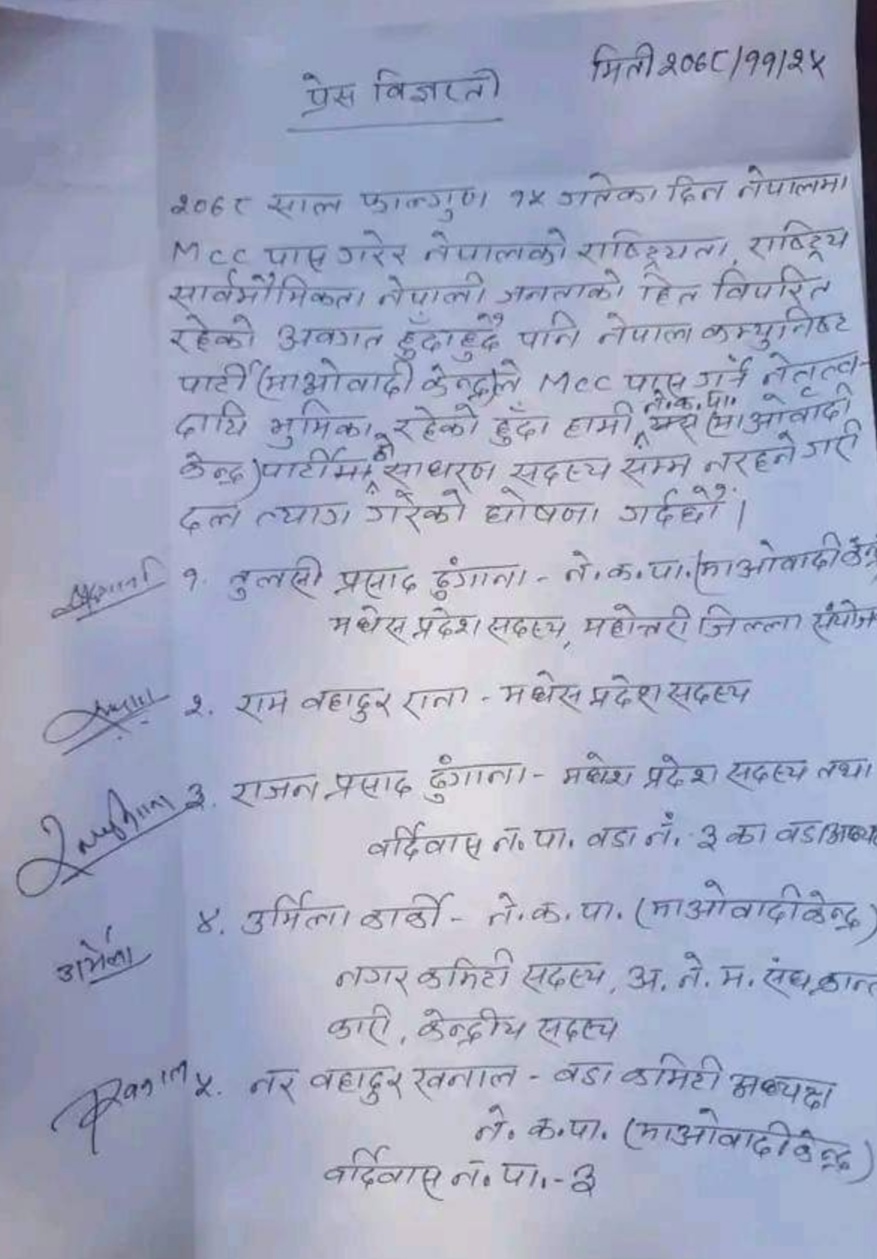 मिती २०७८/११/२५
प्रेस विज्ञप्ती
२०७८ साल फाल्गुण १५ गतेका दिन नेपालमा
MCC पास गरेर नेपालको राष्ट्रियता, राष्ट्रिय
सार्वभौमिकता नेपाली जनताको हित विपरित
रहेको अवगत हुँदाहुदै पनि नेपाल कम्युनिष्ट
पार्टी (माओवादी केन्द्र)ले MCC पास गर्न नेतृत्व-
दायि भुमिका रहेको हुँदा हामी ने.क.पा. (माओवादी
केन्द्र) पार्टीमा को साधरण सदस्य सम्म नरहने गरी
दल त्याग गरेको घोषणा गर्दछौं।
१. तुलसी प्रसाद ढुंगाना - ने.क.पा. (माओवादी केन्द्र
मधेस प्रदेश सदस्य, महोत्तरी जिल्ला संयोज
२. राम वहादुर राना - मधेस प्रदेश सदस्य
३. राजन प्रसाद ढुंगाना - मधेश प्रदेश सदस्य तथा
वर्दिवास न.पा. वडा नं. ३ का वडा अध्य
४. उर्मिला कार्की - ने.क.पा. (माओवादी केन्द्र)
उर्मिला
नगर कमिटी सदस्य, अ.ने.म. संघ क्रान्त
कारी, केन्द्रीय सदस्य
५. नर वहादुर खनाल - वडा कमिटी अध्यक्ष
ने.क.पा. (माओवादी केन्द्र)
वर्दिवास न.पा.-३